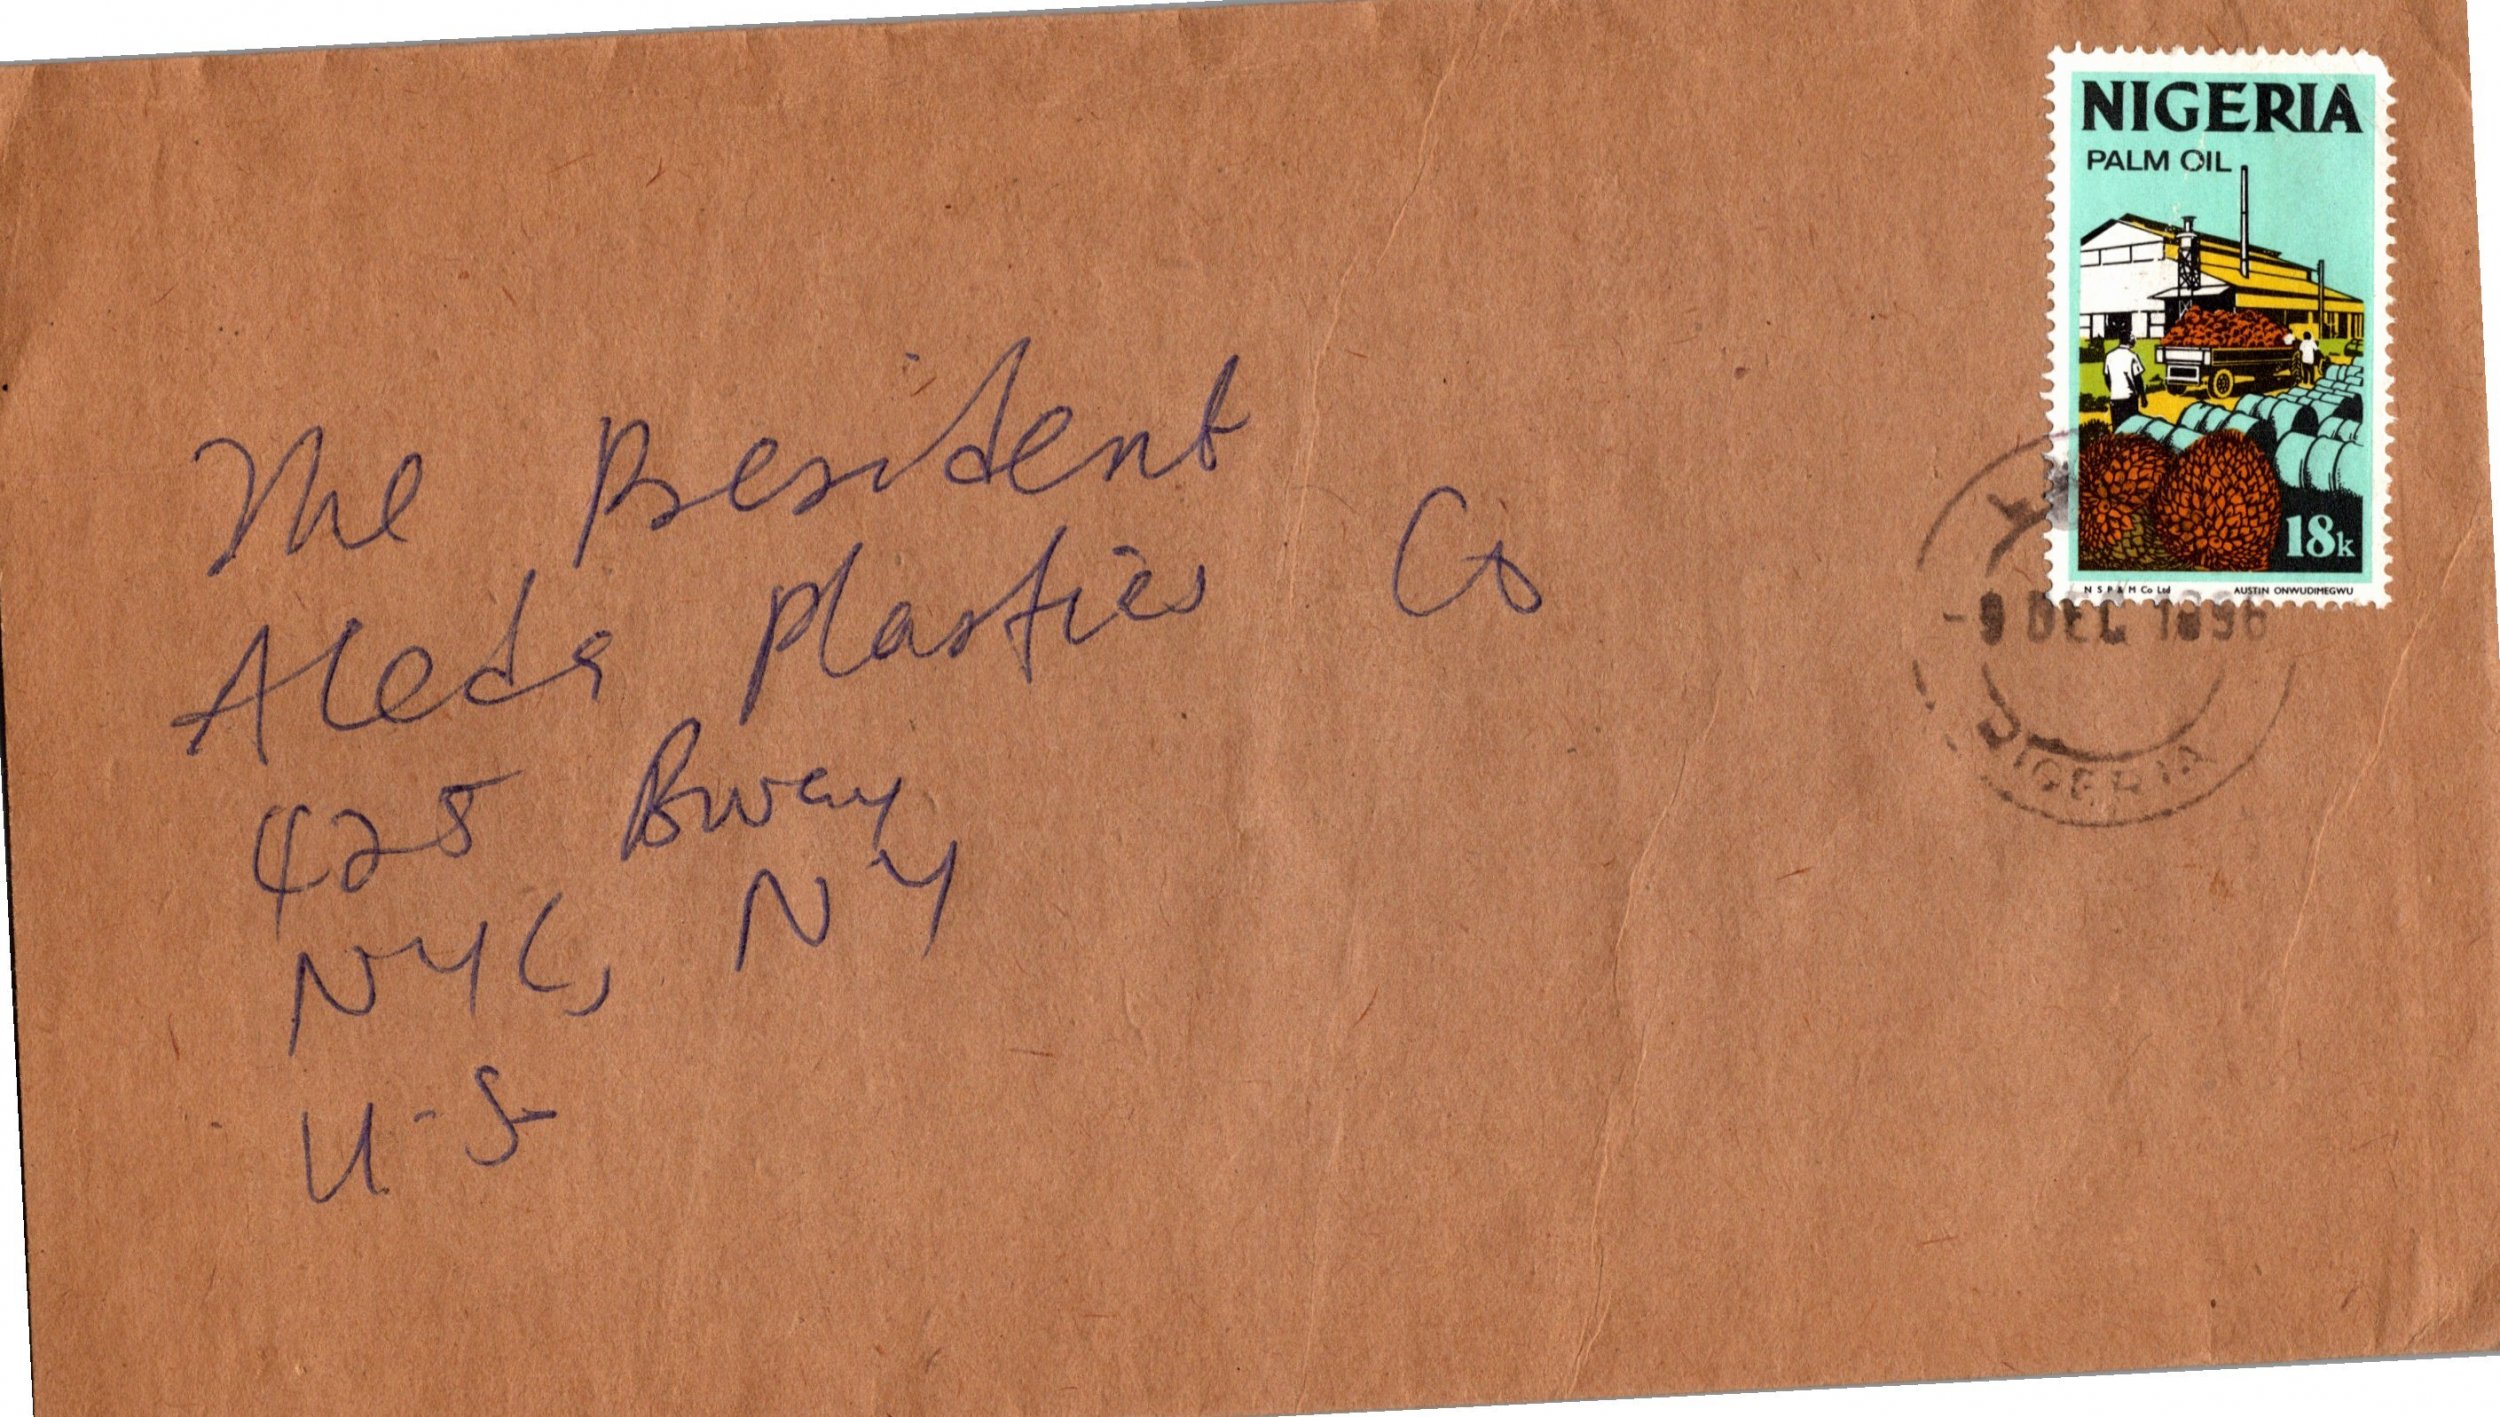 NIGERIA
PALM OIL
18k
N S P & M Co Ltd AUSTIN ONWUDIMEGWU
-9 DEC 1996
NIGERIA
The President
Aleda Plastics Co
425 Bway
NYC, NY
U-S